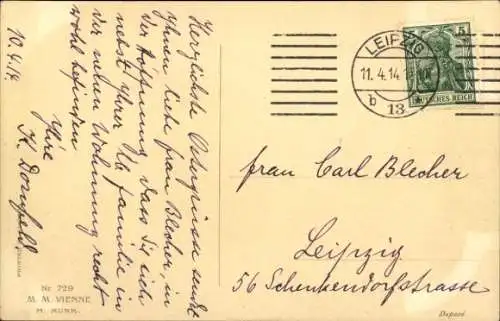 10.4.14.
Herzlichste Ostergrüsse sendet
Ihnen liebe Frau Blecher, in
der Hoffnung, dass Sie sich
nebst Ihrer lb Familie in
der neuen Wohnung recht
wohl befinden
Ihre
K Dornfeld
LEIPZIG
11.4.14
b
13
5
DEUTSCHES REICH
Frau Carl Blecher
Leipzig
56 Schenkendorfstrasse
Nr 729
M. M. VIENNE
M. MUNK.
Deposé